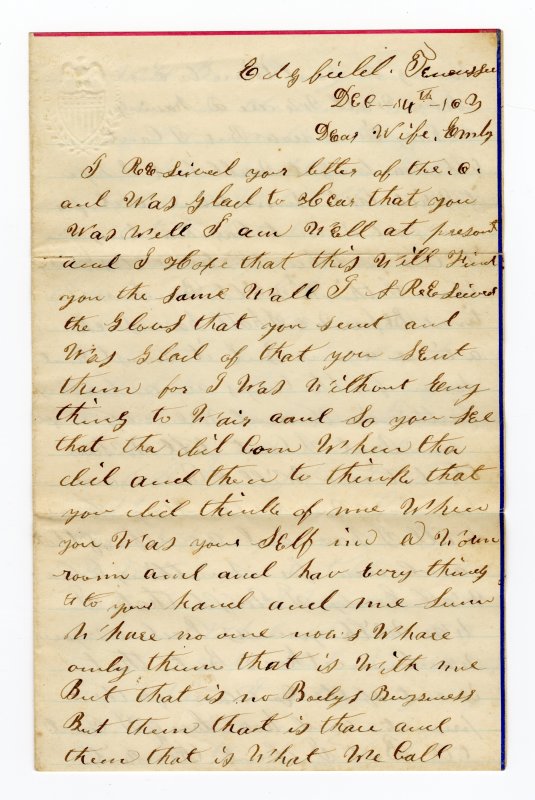 Edgfield. Tenessee
DEC - 14th - 163
Dear Wife. Emly
I ReCeived your letter of the. 6.
and Was Glad to Hear that you
Was Well I am Well at present
and I Hope that this Will Find
you the same Wall I ReCeived
the Glovs that you sent and
Was Glad of that you Sent
them for I Was Without Eny
thing to Wair aand So you See
that tha did Com When tha
did and then to think that
you did think of me When
you Was your Self in a Worm
room and and hav Evry thing
to your hand and me Sum
Whare no one nows Whare
only them that is With me
But that is no Bodys Buysness
But them that is thare and
them that is What We Call